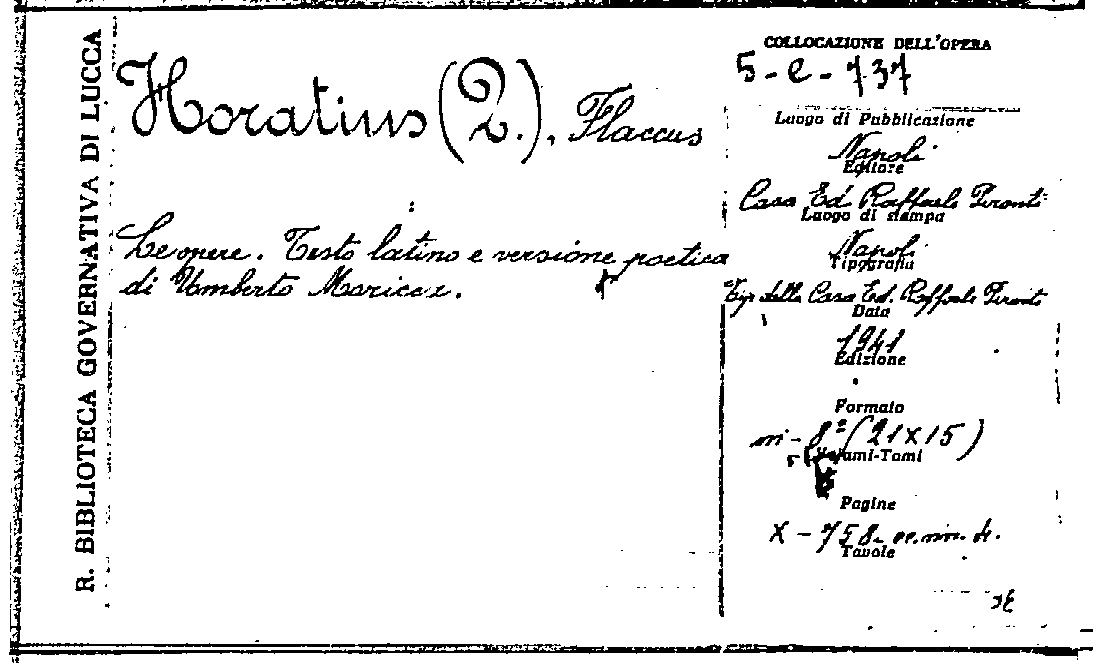 R. BIBLIOTECA GOVERNATIVA DI LUCCA
Horatius (Q.), Flaccus
Le opere. Testo latino e versione poetica
di Umberto Maricaz.
COLLOCAZIONE DELL'OPERA
5-e-737
Luogo di Pubblicazione
Napoli
Editore
Casa Ed. Raffaele Pironti
Luogo di stampa
Napoli
Tipografia
Tip. della Casa Ed. Raffaele Pironti
Data
1941
Edizione
Formato
in-8º (21X15)
Volumi-Tomi
Pagine
X-758
Tavole